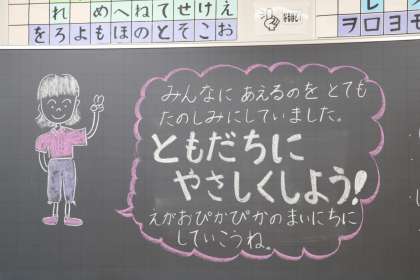 れ　めへねてせけえ
をろよもほのとそこお
レ
ヲロヨモ
みんなに あえるのを とても
たのしみにしていました。
ともだちに
やさしくしよう!
えがおぴかぴかの まいにちに
していこうね。